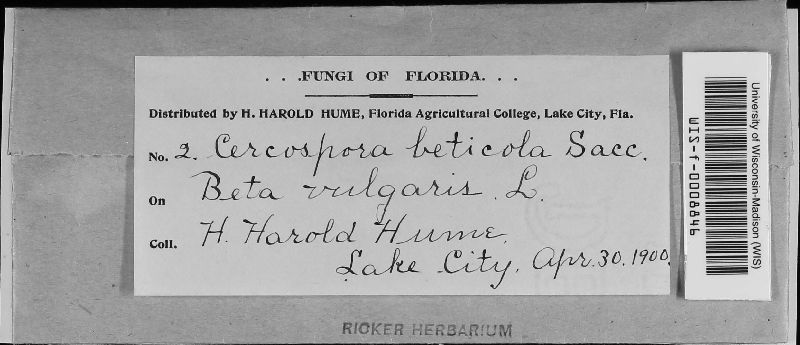 . . .FUNGI OF FLORIDA. . .
Distributed by H. HAROLD HUME, Florida Agricultural College, Lake City, Fla.
No. 2. Cercospora beticola Sacc.
On Beta vulgaris. L.
Coll. H. Harold Hume.
Lake City, Apr. 30. 1900.
RICKER HERBARIUM
University of Wisconsin-Madison (WIS)
WIS-f-0008846